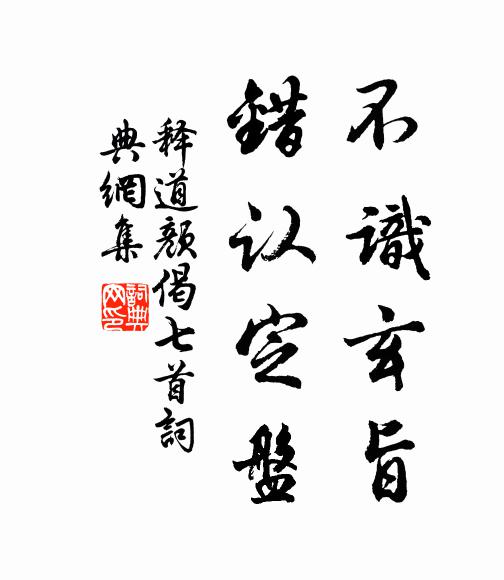 不識玄旨
錯认定盤
释道顏偈七首詞
典網集
詞典網印